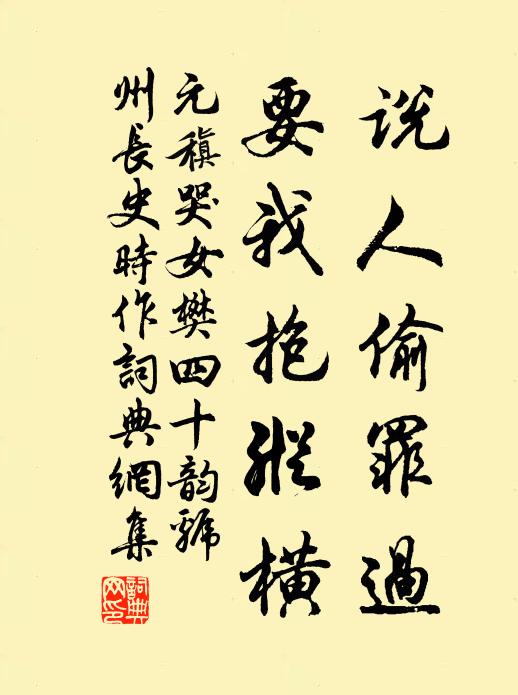 说人偷罪過
要我抱縱橫
元稹哭女樊四十韵號
州長史時作詞典網集
詞典網印